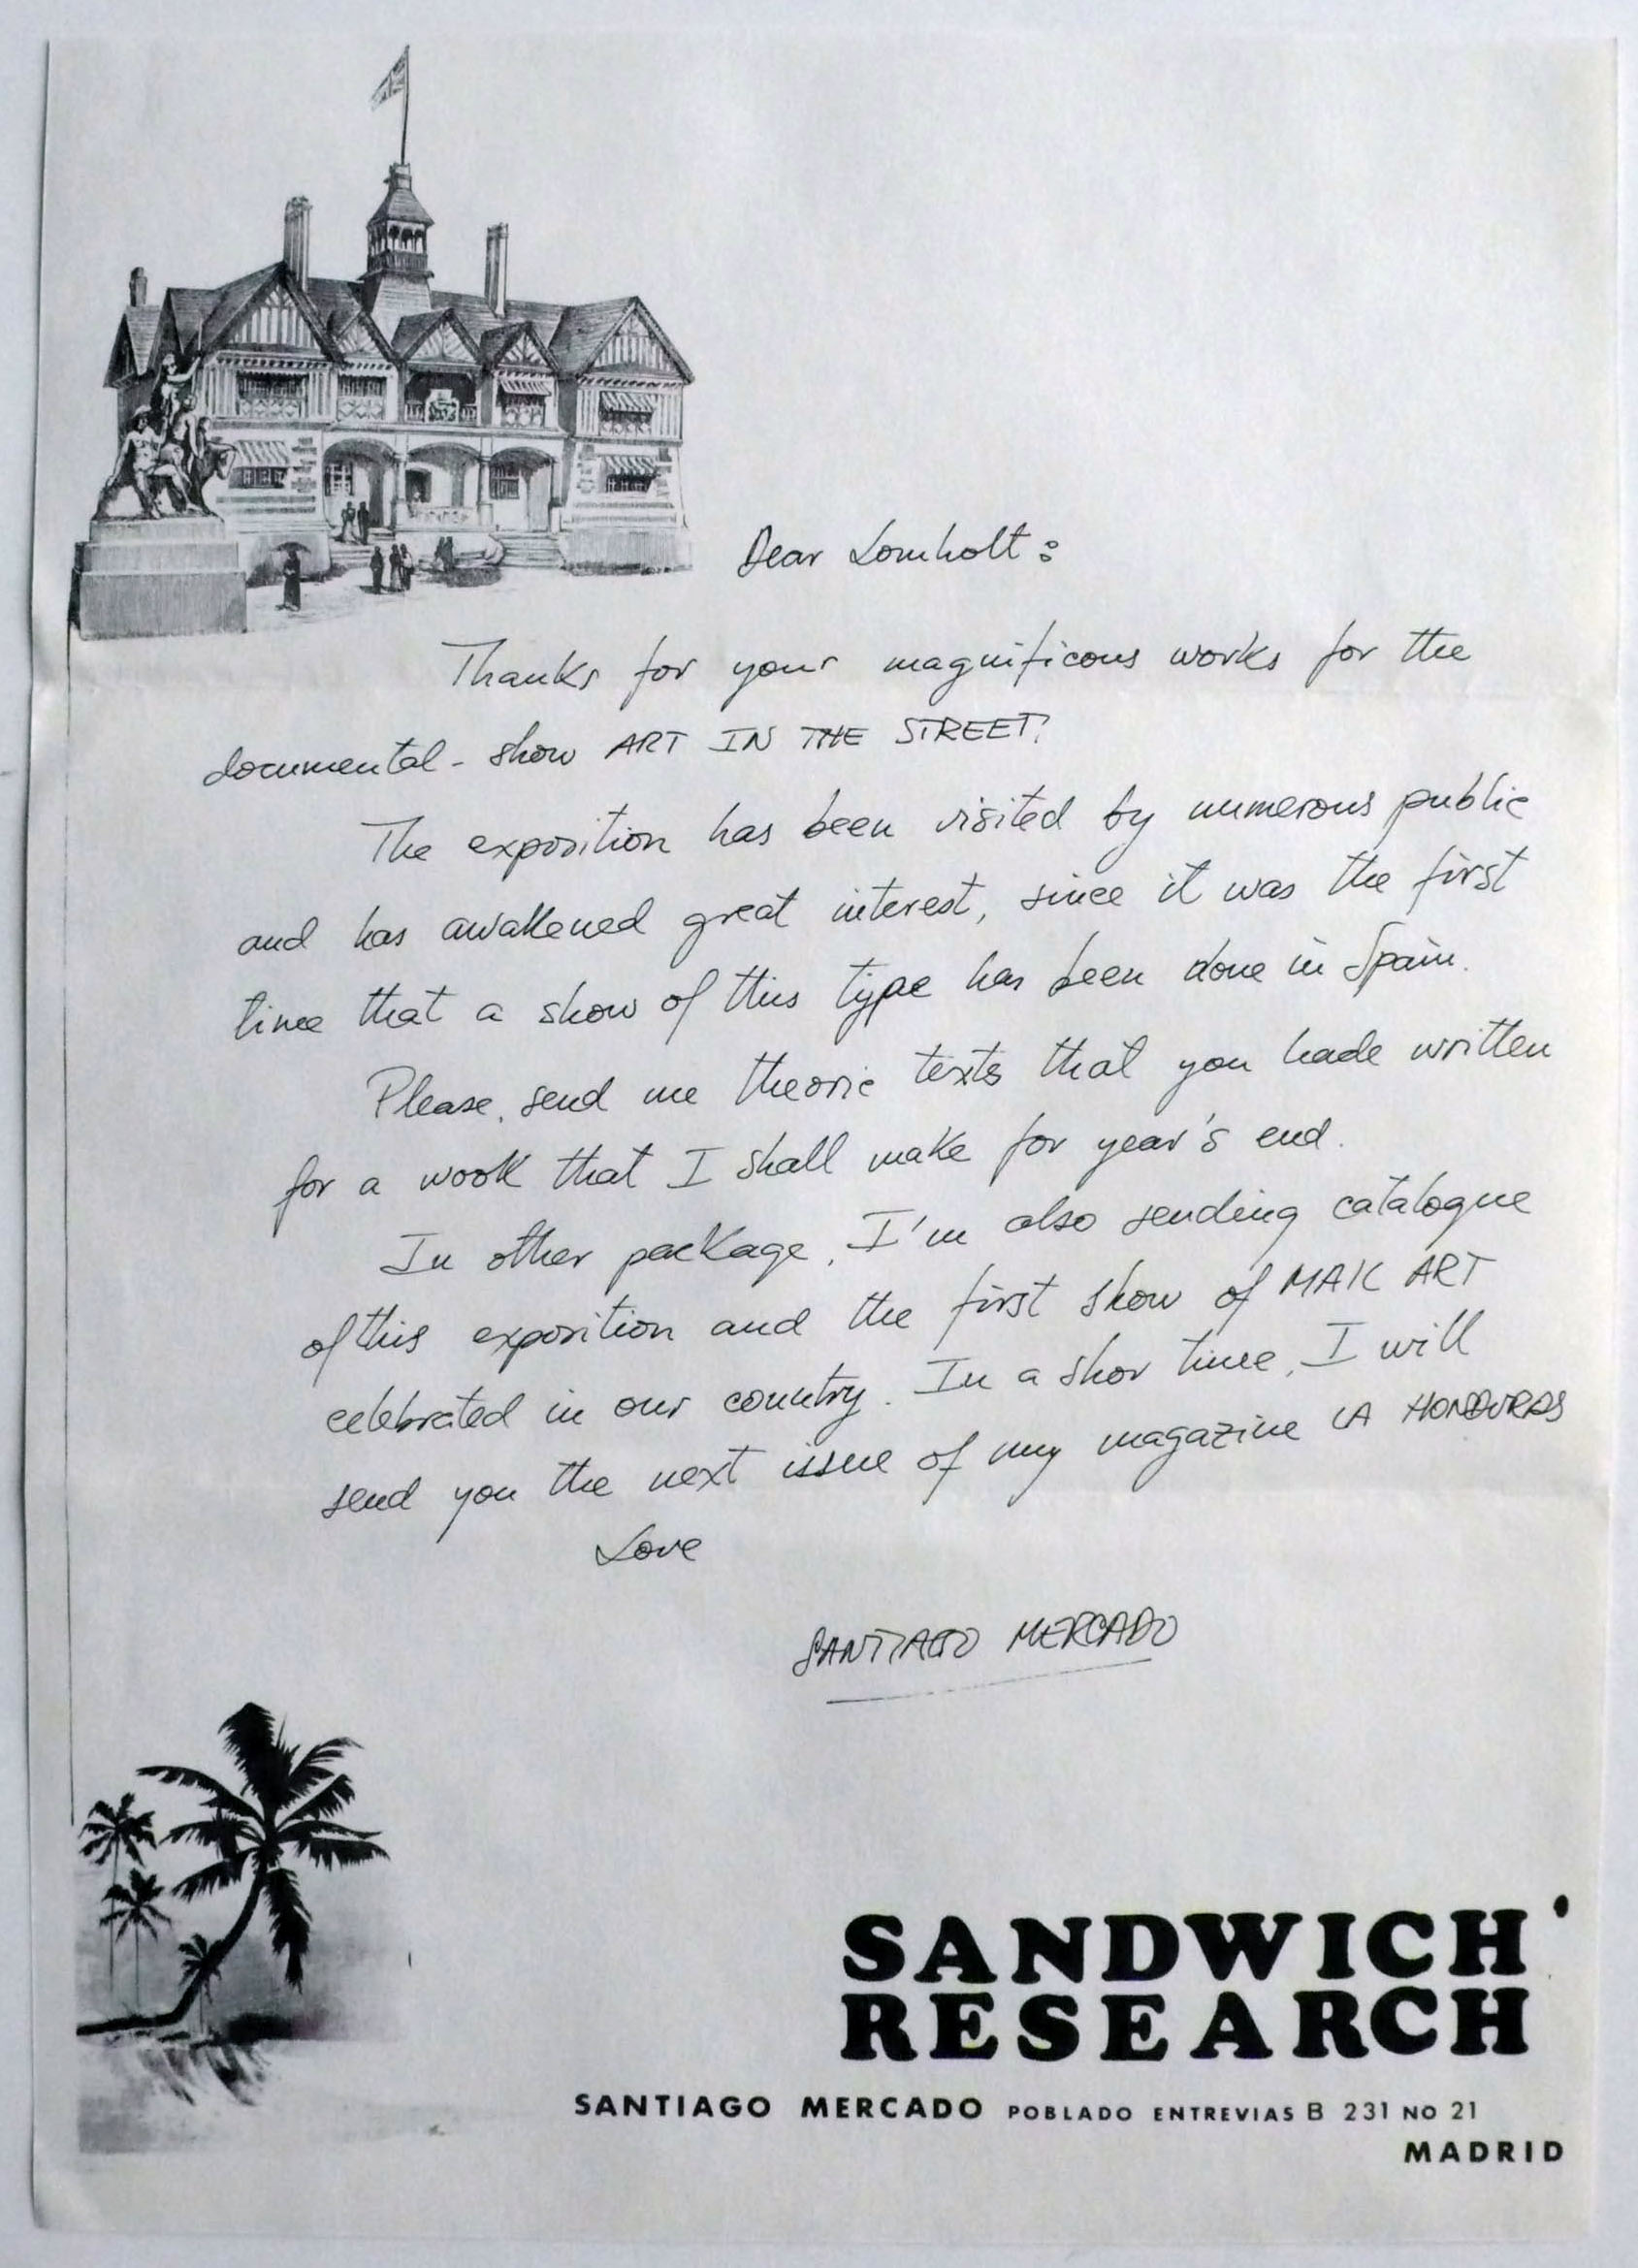 Dear Lomholt:
Thanks for your magnificous works for the
documental - show ART IN THE STREET!
The exposition has been visited by numerous public
and has awakened great interest, since it was the first
time that a show of this type has been done in Spain.
Please, send me theoric texts that you hade written
for a wook that I shall make for year's end.
In other package, I'm also sending catalogue
of this exposition and the first show of MAIL ART
celebrated in our country. In a shor time, I will
send you the next issue of my magazine LA HONDURAS
Love
SANTIAGO MERCADO
SANDWICH
RESEARCH
SANTIAGO MERCADO POBLADO ENTREVIAS B 231 NO 21
MADRID